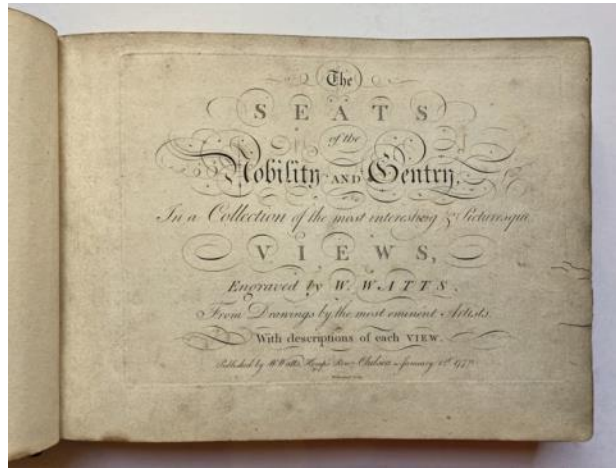 The
SEATS
of the
Nobility AND Gentry,
In a Collection of the most interesting & Picturesque
VIEWS,
Engraved by W. WATTS.
From Drawings by the most eminent Artists.
With descriptions of each VIEW.
Published by W. Watts, Kemp's Row, Chelsea, January 1st. 1779.